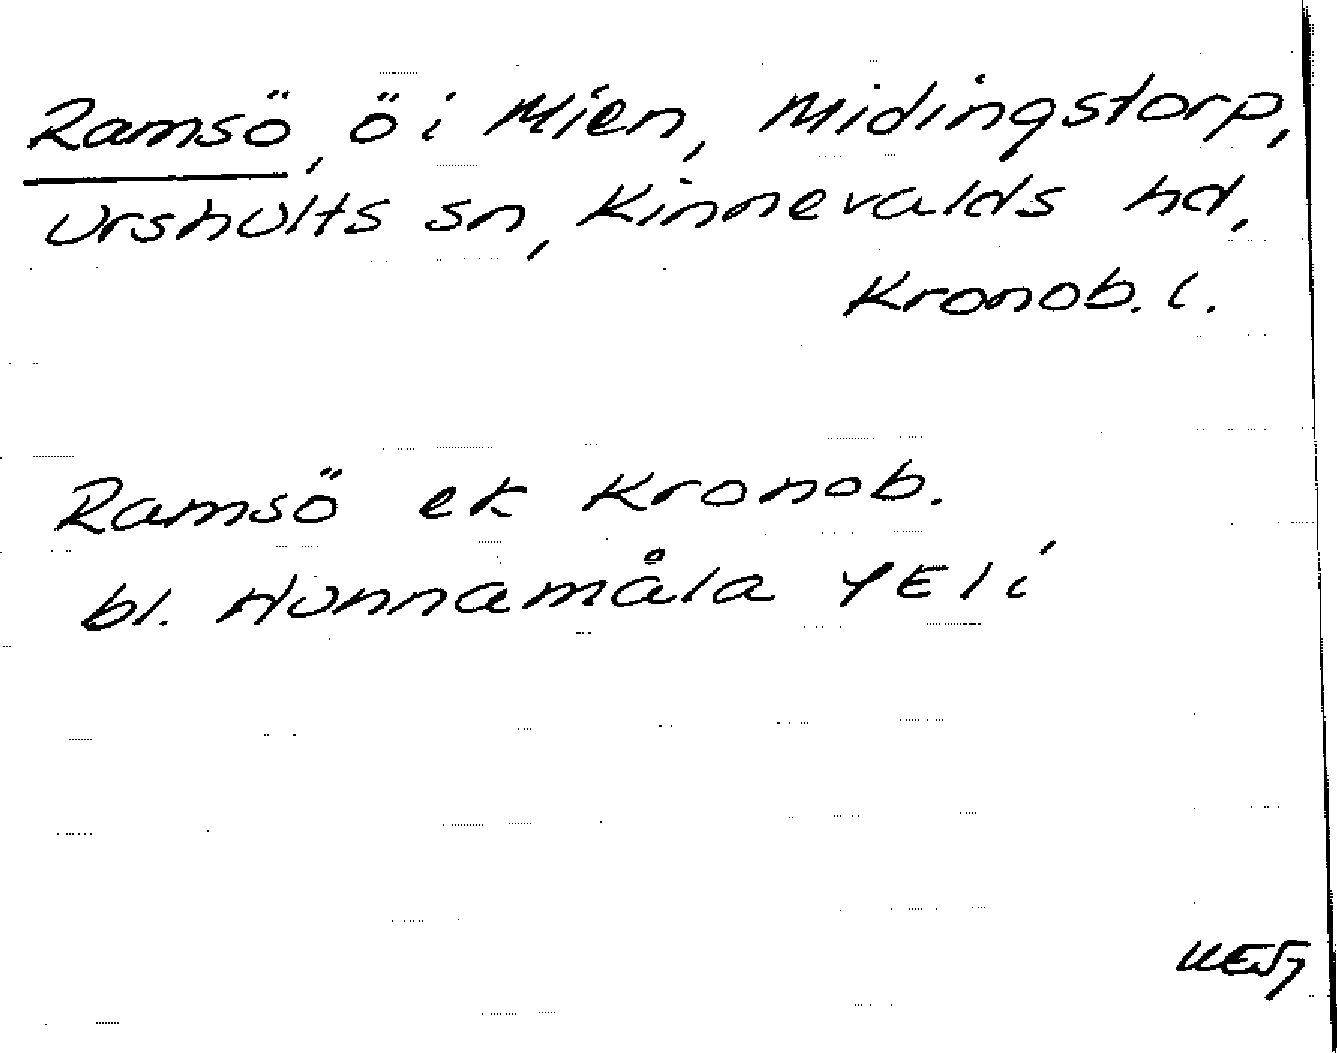 Ramsö, ö i Mien, Midingstorp,
Urshults sn, Kinnevalds hd,
Kronob. l.
Ramsö ek Kronob.
bl. Hunnamåla